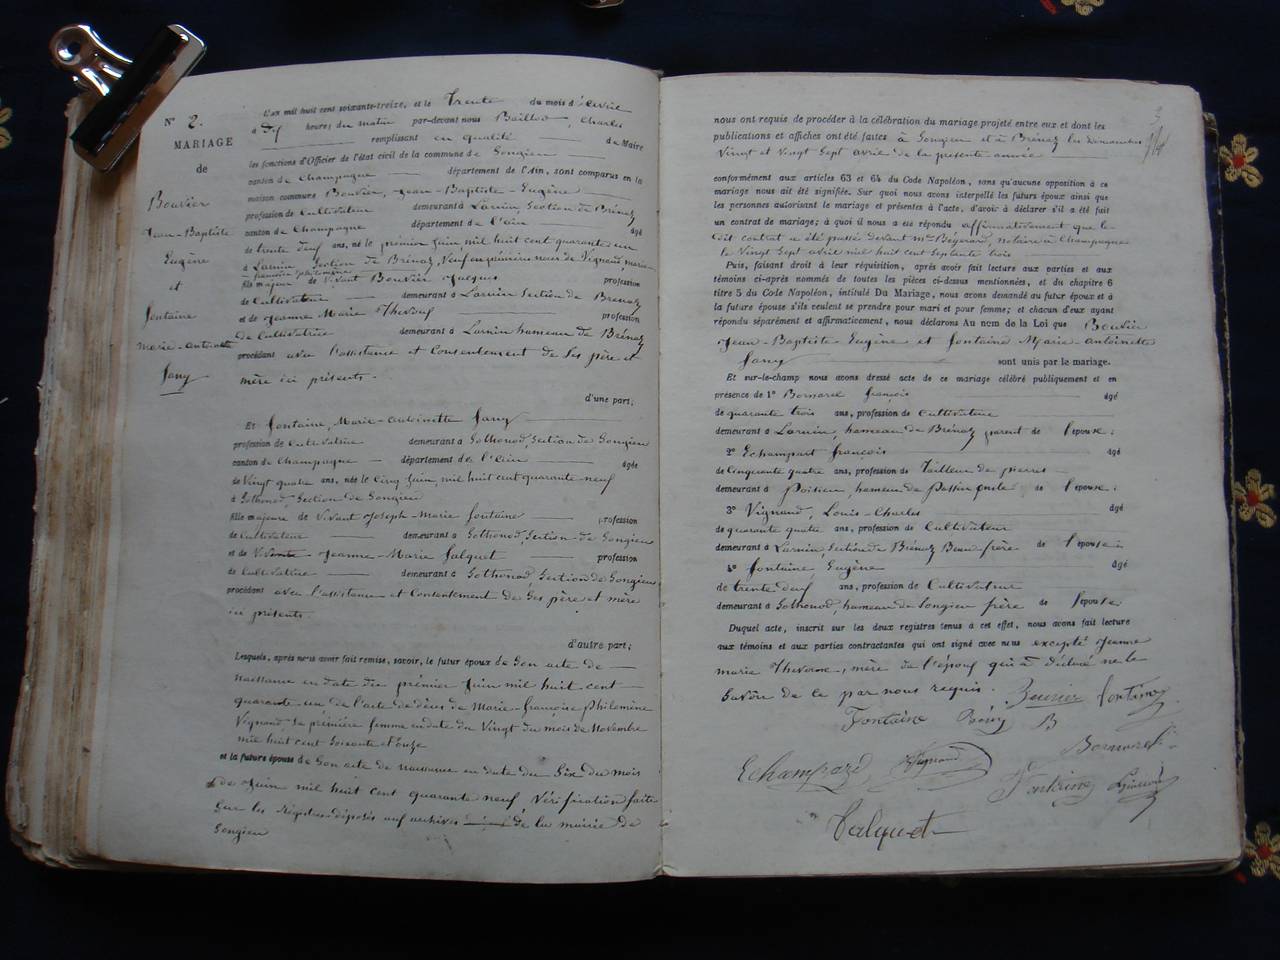 N° 2.
MARIAGE
de
Bouvier
Jean-Baptiste
Eugène
et
fontaine
marie-antoinette
fany
L'an mil huit cent soixante-treize, et le Trente du mois d'avril
à heures, du matin par-devant nous Baillod, Charles
remplissant en qualité de Maire
les fonctions d'Officier de l'état civil de la commune de Songieu
canton de Champagne département de l'Ain, sont comparus en la
maison commune Bouvier, Jean-Baptiste-Eugène
profession de Cultivateur demeurant à Larnin, Section de Brénaz
canton de Champagne département de l'ain âgé
de trente deuf ans, né le premier juin mil huit cent quarante un
à Larnin Section de Brénaz, Veuf en premières noces de Vignand, marie-
françoise philomène
fils majeur de Vivant Bouvier Jacques profession
de Cultivateur demeurant à Larnin Section de Brénaz
et de Jeanne Marie profession
de Cultivatrice demeurant à Larnin hameau de Brénaz
procédant avec l'assistance et Consentement de Ses père et
mère ici présents.
d'une part;
Et fontaine, Marie-antoinette fany
profession de Cultivatrice demeurant à Gothonod, Section de Songieu
canton de Champagne département de l'ain âgée
de Vingt quatre ans, née le Cinq juin, mil huit cent quarante neuf
à Gothonod, Section de Songieu
fille majeure de Vivant Joseph-Marie fontaine profession
de Cultivateur demeurant à Gothonod, Section de Songieu
et de Vivante Jeanne-Marie falquet profession
de Cultivatrice demeurant à Gothonod Section de Songieu
procédant avec l'assistance et Consentement de Ses père et mère
ici présents.
d'autre part;
Lesquels, après nous avoir fait remise, savoir, le futur époux de Son acte de
naissance en date du premier Juin mil huit cent
quarante un de l'acte de décès de Marie-françoise Philomène
Vignand, Sa première femme en date du Vingt du mois de Novembre
mil huit cent Soixante et onze
et la future épouse de Son acte de naissance en date du Six du mois
de Juin mil huit cent quarante neuf Vérification faite
Sur les régistres déposés aux archives de la mairie de
Songieu
3
nous ont requis de procéder à la célébration du mariage projeté entre eux et dont les
publications et affiches ont été faites à Songieu et à Brénaz les Dimanches
Vingt et Vingt Sept avril de la présente année
conformément aux articles 63 et 64 du Code Napoléon, sans qu'aucune opposition à ce
mariage nous ait été signifiée. Sur quoi nous avons interpellé les futurs époux ainsi que
les personnes autorisant le mariage et présentes à l'acte, d'avoir à déclarer s'il a été fait
un contrat de mariage; à quoi il nous a été répondu affirmativement que le
dit contrat a été passé devant me Bégerard, notaire à Champagne
le Vingt Sept avril mil huit cent Septante trois
Puis, faisant droit à leur réquisition, après avoir fait lecture aux parties et aux
témoins ci-après nommés de toutes les pièces ci-dessus mentionnées, et du chapitre 6
titre 5 du Code Napoléon, intitulé Du Mariage, nous avons demandé au futur époux et à
la future épouse s'ils veulent se prendre pour mari et pour femme; et chacun d'eux ayant
répondu séparément et affirmativement, nous déclarons Au nom de la Loi que Bouvier
Jean-Baptiste Eugène et fontaine Marie antoinette
fany sont unis par le mariage.
Et sur-le-champ nous avons dressé acte de ce mariage célébré publiquement et en
présence de 1° Bornarel françois âgé
de quarante trois ans, profession de Cultivateur
demeurant à Larnin, hameau de Brénaz parent de l'épouse;
2° Echampart françois âgé
de Cinquante quatre ans, profession de Tailleur de pierres
demeurant à Poisieu, hameau de de l'épouse;
3° Vignand, Louis-Charles âgé
de quarante quatre ans, profession de Cultivateur
demeurant à Larnin, Section de Brénaz Beau-frère de l'épouse
4° fontaine Eugène âgé
de trente deuf ans, profession de Cultivateur
demeurant à Gothonod, hameau de Songieu frère de l'épouse.
Duquel acte, inscrit sur les deux registres tenus à cet effet, nous avons fait lecture
aux témoins et aux parties contractantes qui ont signé avec nous excepté Jeanne
marie mère de l'époux qui a déclaré ne le
Savoir de ce par nous requis. Bouvier fontaine
Fontaine B
Bornarel
Echampard Vignand
Fontaine
falquet